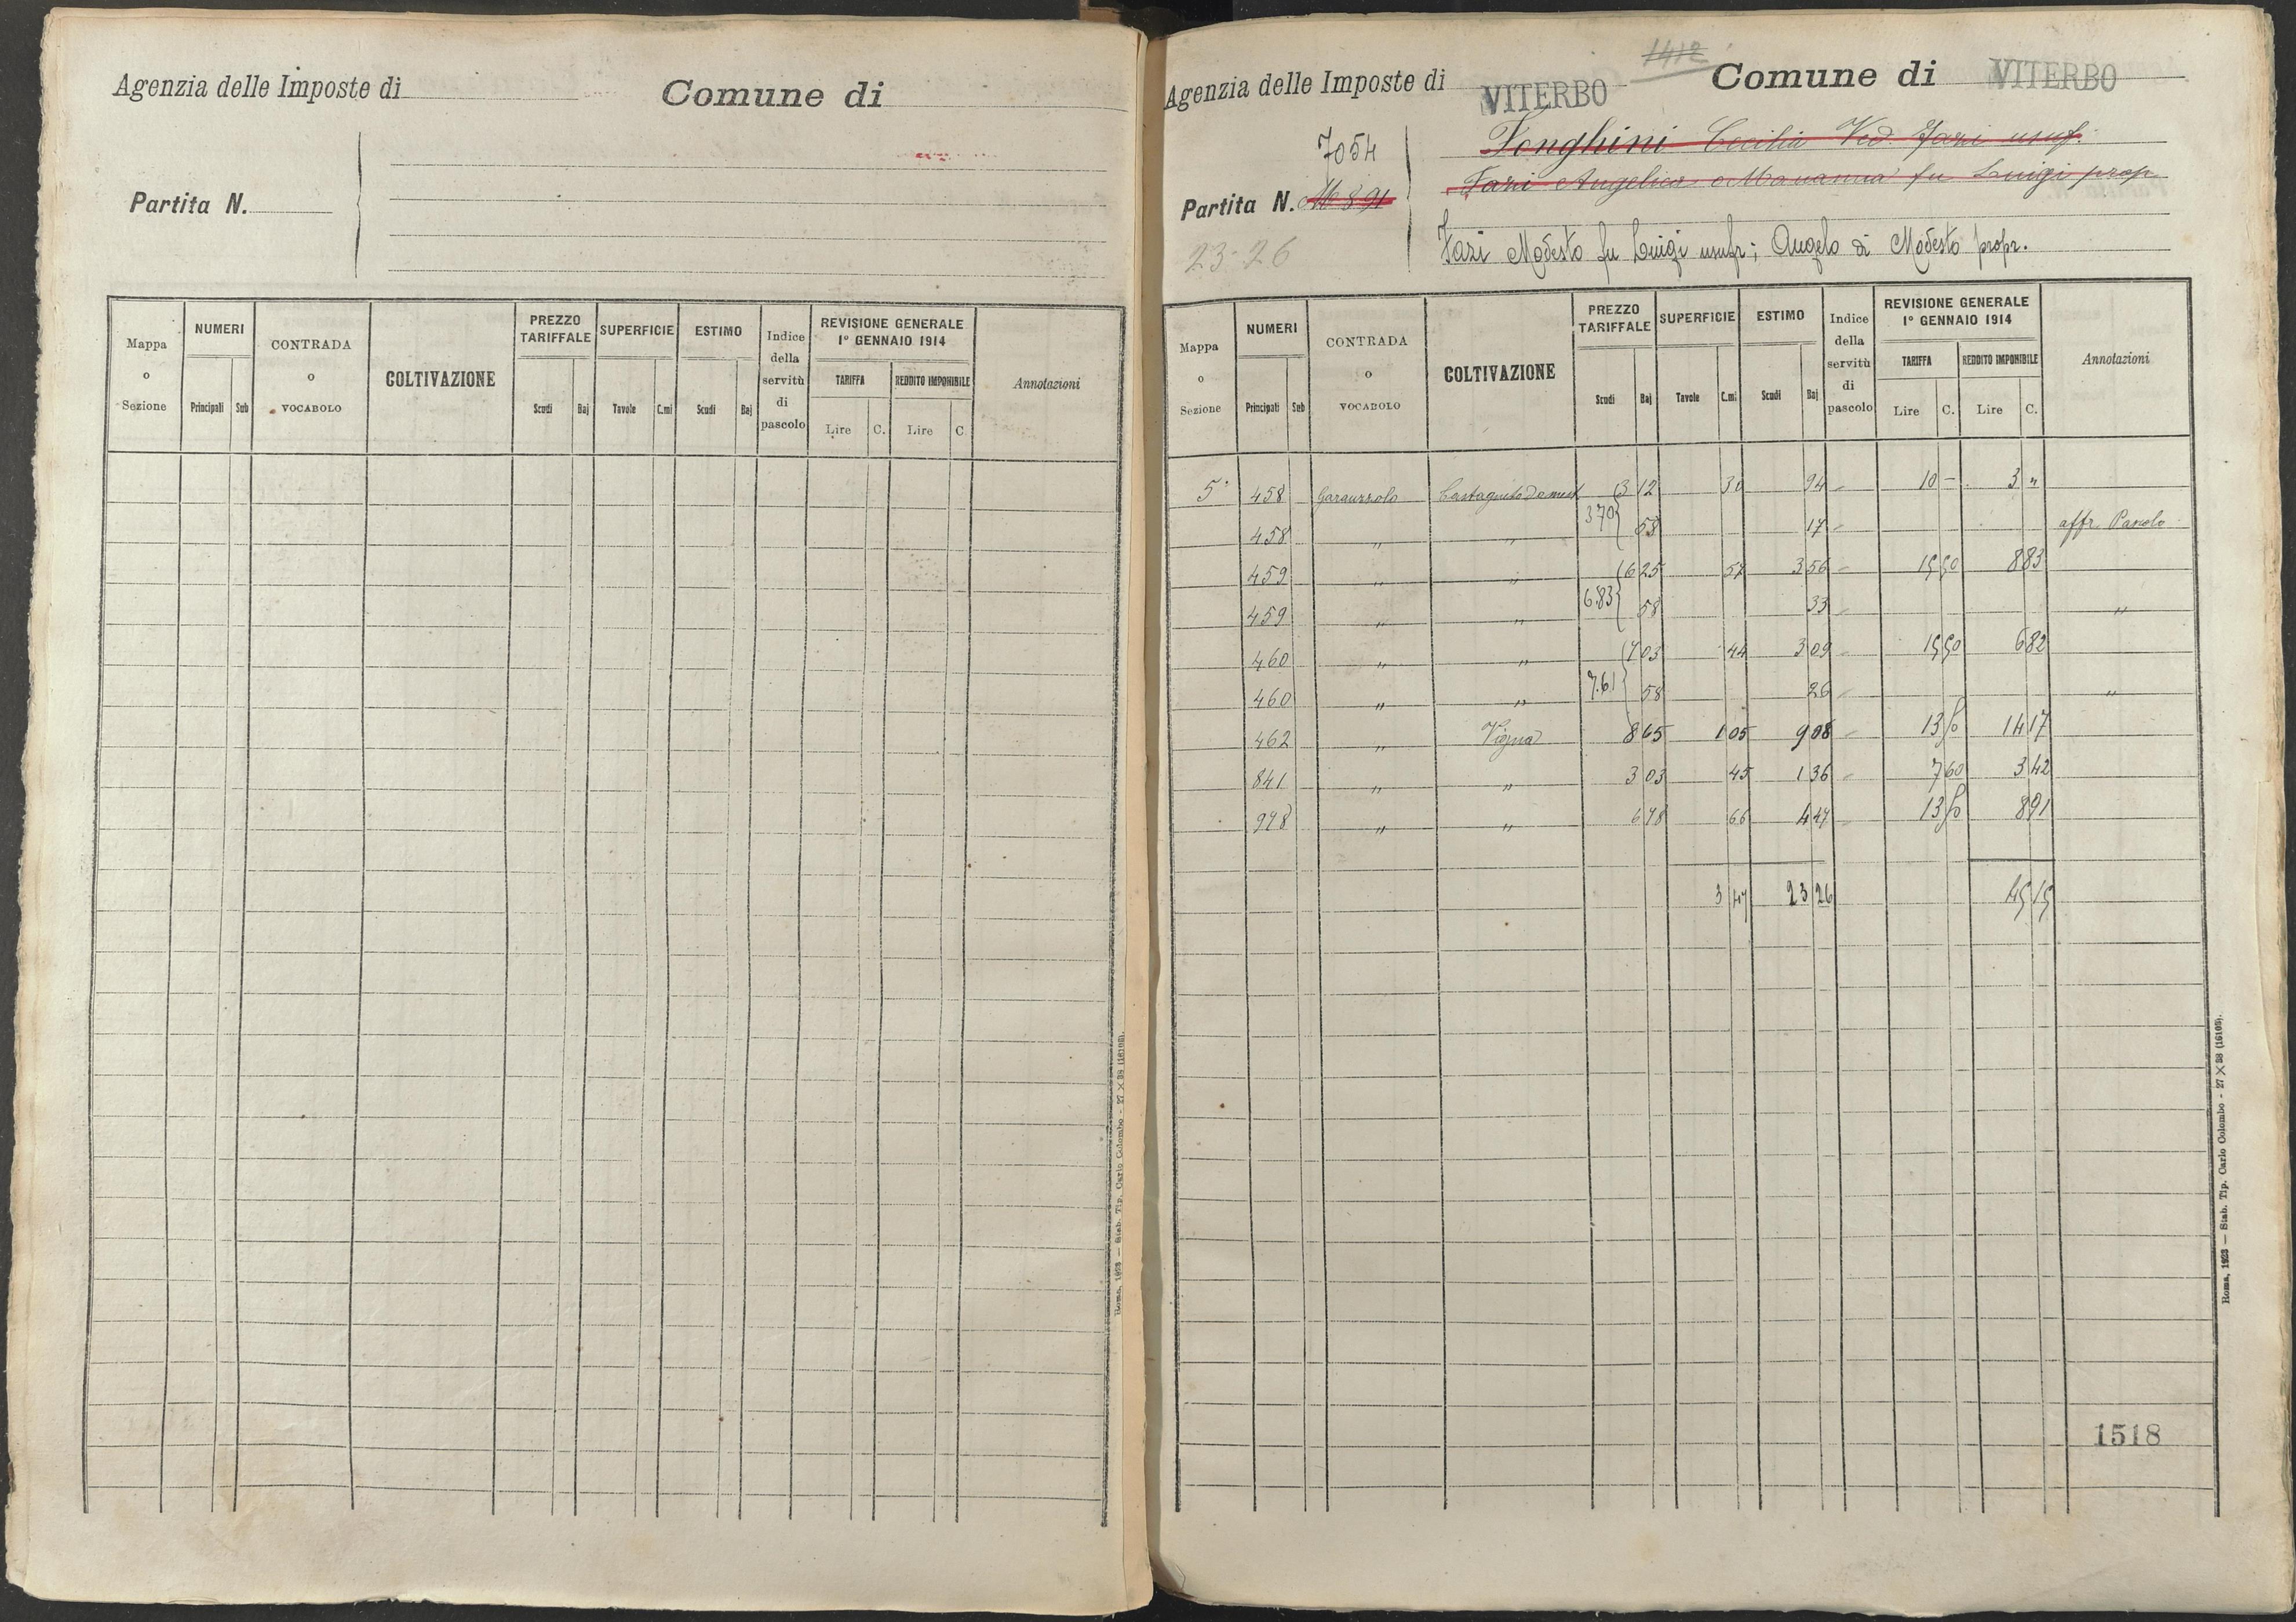 Agenzia delle Imposte di
Comune di
Partita N.
Mappa o Sezione
NUMERI
Principali Sub
CONTRADA o VOCABOLO
COLTIVAZIONE
PREZZO TARIFFALE
Scudi Baj
SUPERFICIE
Tavole C.mi
ESTIMO
Scudi Baj
Indice della servitù di pascolo
REVISIONE GENERALE
1° GENNAIO 1914
TARIFFA
Lire C.
REDDITO IMPONIBILE
Lire C.
Annotazioni
Roma, 1923 — Stab. Tip. Carlo Colombo - 27 × 38 (16105).
1412
Agenzia delle Imposte di VITERBO
Comune di VITERBO
7054
Partita N. 891
23-26
Fonghini Cecilia Ved. Fazi usuf.
Fazi Angelica Marianna fu Luigi prop
Fazi Modesto fu Luigi usufr; Angelo di Modesto propr.
Mappa o Sezione
NUMERI
Principali Sub
CONTRADA o VOCABOLO
COLTIVAZIONE
PREZZO TARIFFALE
Scudi Baj
SUPERFICIE
Tavole C.mi
ESTIMO
Scudi Baj
Indice della servitù di pascolo
REVISIONE GENERALE
1° GENNAIO 1914
TARIFFA
Lire C.
REDDITO IMPONIBILE
Lire C.
Annotazioni
5° 458 Castagneto Domest 3 12 30 94 10 - 3 "
458 " " 3 70 58 17 affr. Pascolo
459 " " 6 25 57 3 56 15 50 8 83
459 " " 6.83 58 33 "
460 " " 7 03 44 3 09 15 50 6 82
460 " " 7.61 58 26 "
462 " Vigna 8 65 1 05 9 08 13 50 14 17
841 " " 3 03 45 1 36 7 60 3 42
978 " " 6 78 66 4 47 13 50 8 91
3 47 23 26 45 15
1518
Roma, 1923 — Stab. Tip. Carlo Colombo - 27 × 38 (16105).